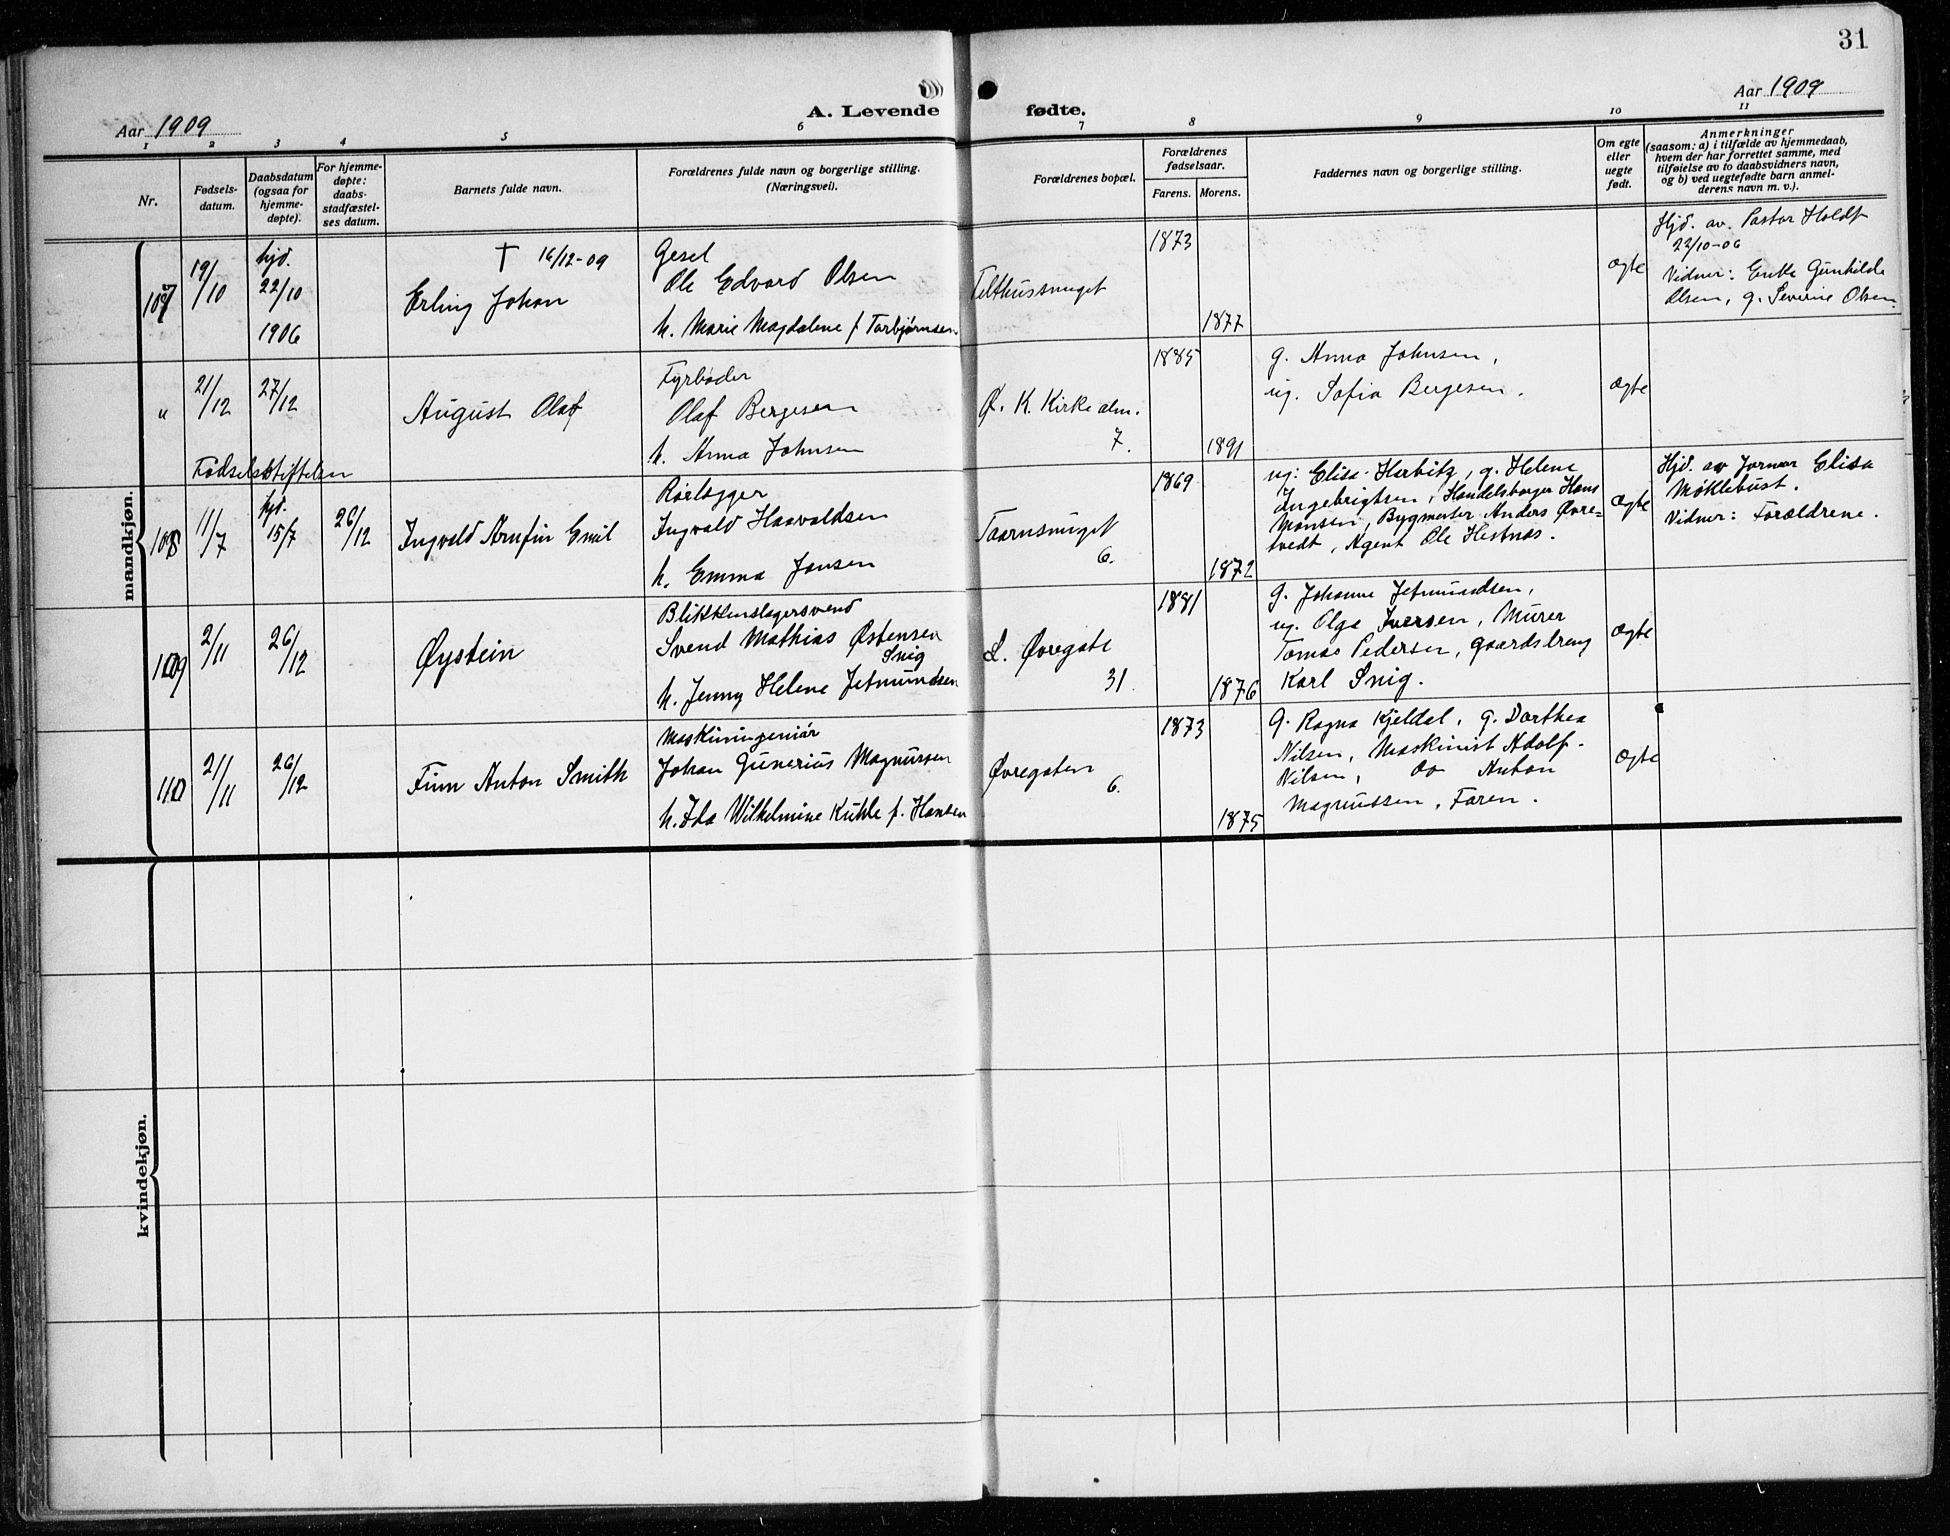 31
Aar 1909
A. Levende fødte.
Aar 1909
1 2 3 4 5 6 7 8 9 10 11
Nr.
Fødsels-
datum.
Daabsdatum
(ogsaa for
hjemme-
døpte).
For hjemme-
døpte:
daabs-
stadfæstel-
ses datum.
Barnets fulde navn.
Forældrenes fulde navn og borgerlige stilling.
(Næringsvei).
Forældrenes bopæl.
Forældrenes
fødselsaar.
Farens. Morens.
Faddernes navn og borgerlige stilling.
Om egte
eller
uegte
født.
Anmerkninger
(saasom: a) i tilfælde av hjemmedaab,
hvem der har forrettet samme, med
tilføielse av to daabsvidners navn,
og b) ved uegtefødte barn anmel-
derens navn m. v.).
mandkjøn.
107
19/10
hjd.
22/10
1906
† 16/12-09
Erling Johan
Gesel
Ole Edvard Olsen
h. Marie Magdalene f Torbjørnsen
Telthussmuget
1873
1877
Ægte
Hjd. av. Pastor Holdt
22/10-06
Vidner: Enke Gunhilde
Olsen, g. Severine Olsen
"
21/12
27/12
August Olaf
Fyrbøder
Olaf Bergesen
h. Anna Johnsen
Ø. K. Kirke alm.
7.
1885
1891
g. Anna Johnsen,
ug. Sofia Bergesen.
Ægte
Fødselsstiftelsen
108
11/7
hjd.
15/7
26/12
Ingvald Arnfin Emil
Rørlægger
Ingvald Haavaldsen
h. Emma Jansen
Taarnsmuget
6.
1869
1872
ug: Elisa Herbitz, g. Helene
Ingebrigtsen, Handelsborger Hans
Monsen, Bygmester Anders Øvre-
tvedt, Agent Ole Hestnæs.
Ægte
Hjd. av Jormor Elisa
Møklebust.
Vidner: Forældrene.
109
2/11
26/12
Øystein
Blikkenslagersvend
Svend Mathias Østensen
Snig
h. Jenny Helene Jetmundsen
L. Øvregate
31.
1881
1876
g. Johanne Jetmundsen,
ug. Olga Iversen, Murer
Tomas Pedersen, gaardsdreng
Karl Snig.
Ægte
110
21/11
26/12
Finn Anton Smith
Maskiningeniør
Johan Gunerius Magnussen
h. Ida Wilhelmine Kuhle f. Hansen
Øvregaten
6.
1873
1875
g. Ragna Kjeldal, g. Dorthea
Nilsen, Maskinist Adolf
Nilsen, do Anton
Magnussen, Faren.
Ægte
kvindekjøn.